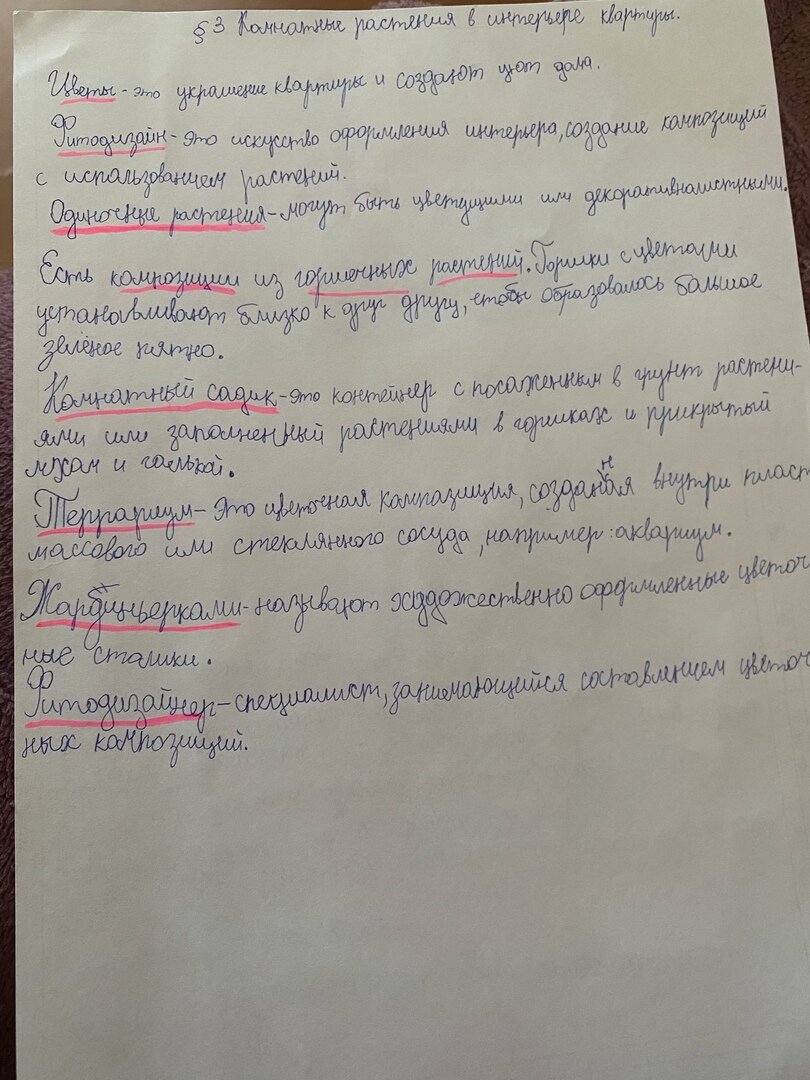 §3 Комнатные растения в интерьере квартиры.
Цветы - это украшение квартиры и создают уют дома.
Фитодизайн - это искусство оформления интерьера, создание композиций
с использованием растений.
Одиночные растения - могут быть цветущими или декоративнолистными.
Есть композиции из горшечных растений. Горшки с цветами
устанавливают близко к друг другу, чтобы образовалось большое
зелёное пятно.
Комнатный садик - это контейнер с посаженным в грунт растени-
ями или заполненный растениями в горшках и прикрытый
мхом и галькой.
Террариум - Это цветочная композиция, созданная внутри пласт
массового или стеклянного сосуда, например: аквариум.
Жардиньерками - называют художественно оформленные цветоч
ные столики.
Фитодизайнер - специалист, занимающейся составлением цветоч
ных композиций.